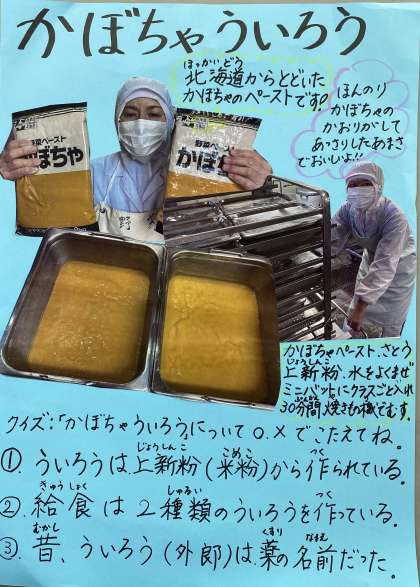 かぼちゃういろう
ほっかいどう
北海道からとどいた
かぼちゃのペーストです。
ほんのり
かぼちゃの
かおりがして
あっさりしたあまさ
でおいしいよ!!
野菜ペースト
かぼちゃ
野菜ペースト
かぼちゃ
かぼちゃペースト、さとう
じょうしんこ
上新粉、水をよくまぜ
ミニバットにクラスごと入れ
30分間焼きもの機でむす。
クイズ:「かぼちゃういろう」について○、×でこたえてね。
じょうしんこ こめこ つく
①. ういろうは、上新粉(米粉)から作られている。
きゅうしょく しゅるい つく
②. 給食は2種類のういろうを作っている。
むかし くすり なまえ
③. 昔、ういろう(外郎)は、薬の名前だった。